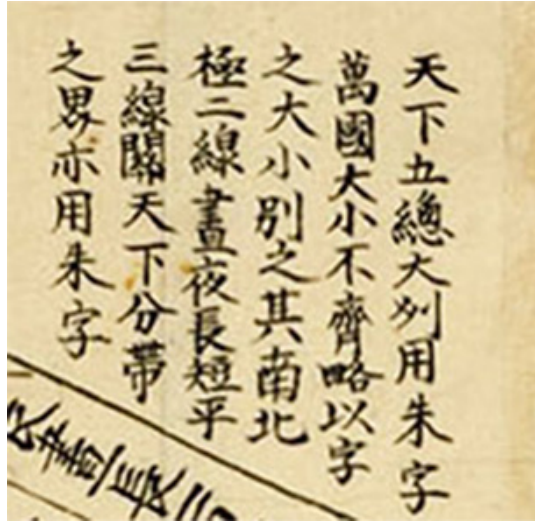 天下五總大列用朱字
萬國大小不齊略以字
之大小別之其南北
極二線晝夜長短平
三線關天下分帶
之界亦用朱字